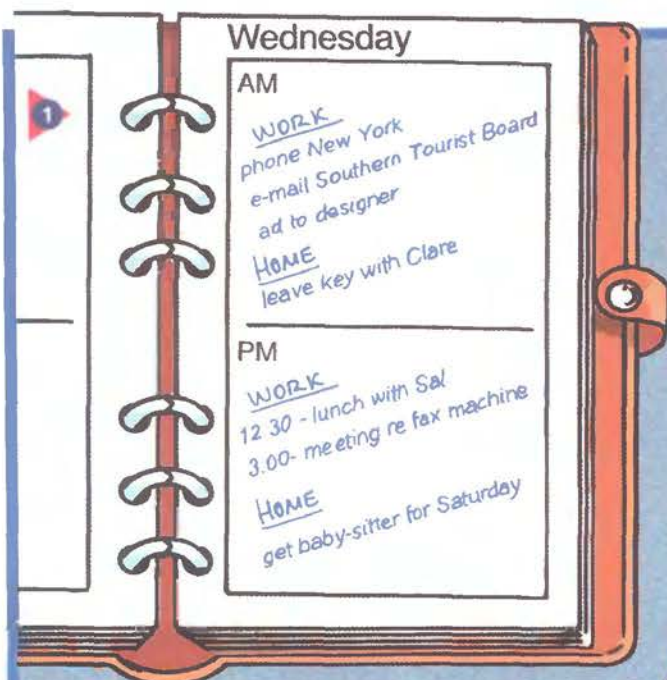 1
Wednesday
AM
WORK
phone New York
e-mail Southern Tourist Board
ad to designer
HOME
leave key with Clare
PM
WORK
12 30 - lunch with Sal
3.00 - meeting re fax machine
HOME
get baby-sitter for Saturday